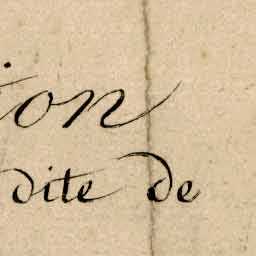 ion
dite de